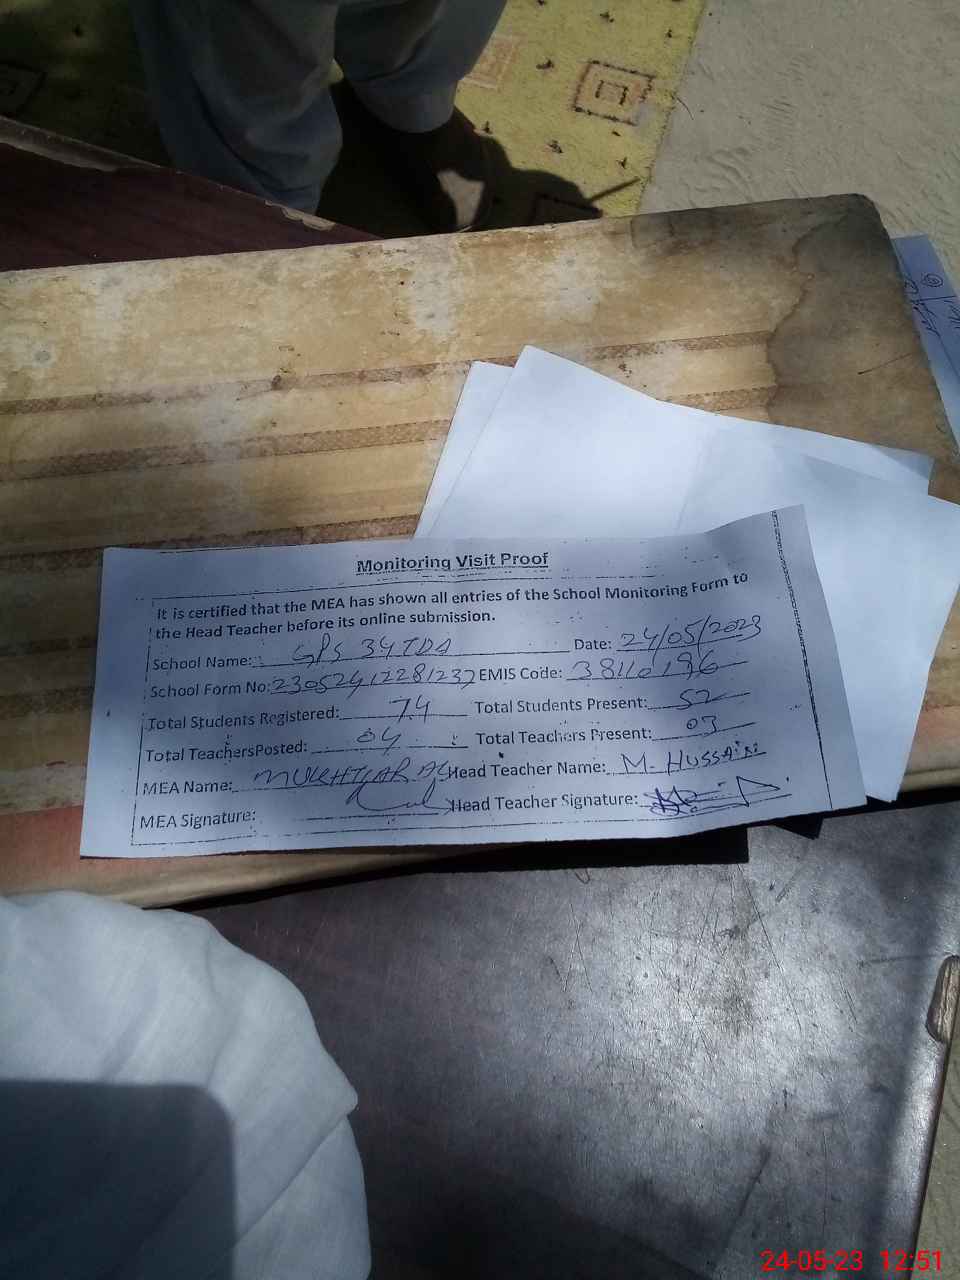 Monitoring Visit Proof
It is certified that the MEA has shown all entries of the School Monitoring Form to
the Head Teacher before its online submission.
School Name: GPS 34 TDA Date: 24/05/2023
School Form No: 23052412281237 EMIS Code: 38110196
Total Students Registered: 74 Total Students Present: 52
Total TeachersPosted: 04 Total Teachers Present: 03
MEA Name: MUKHTIAR ALI Head Teacher Name: M. HUSSAIN
MEA Signature: Head Teacher Signature:
24-05-23 12:51